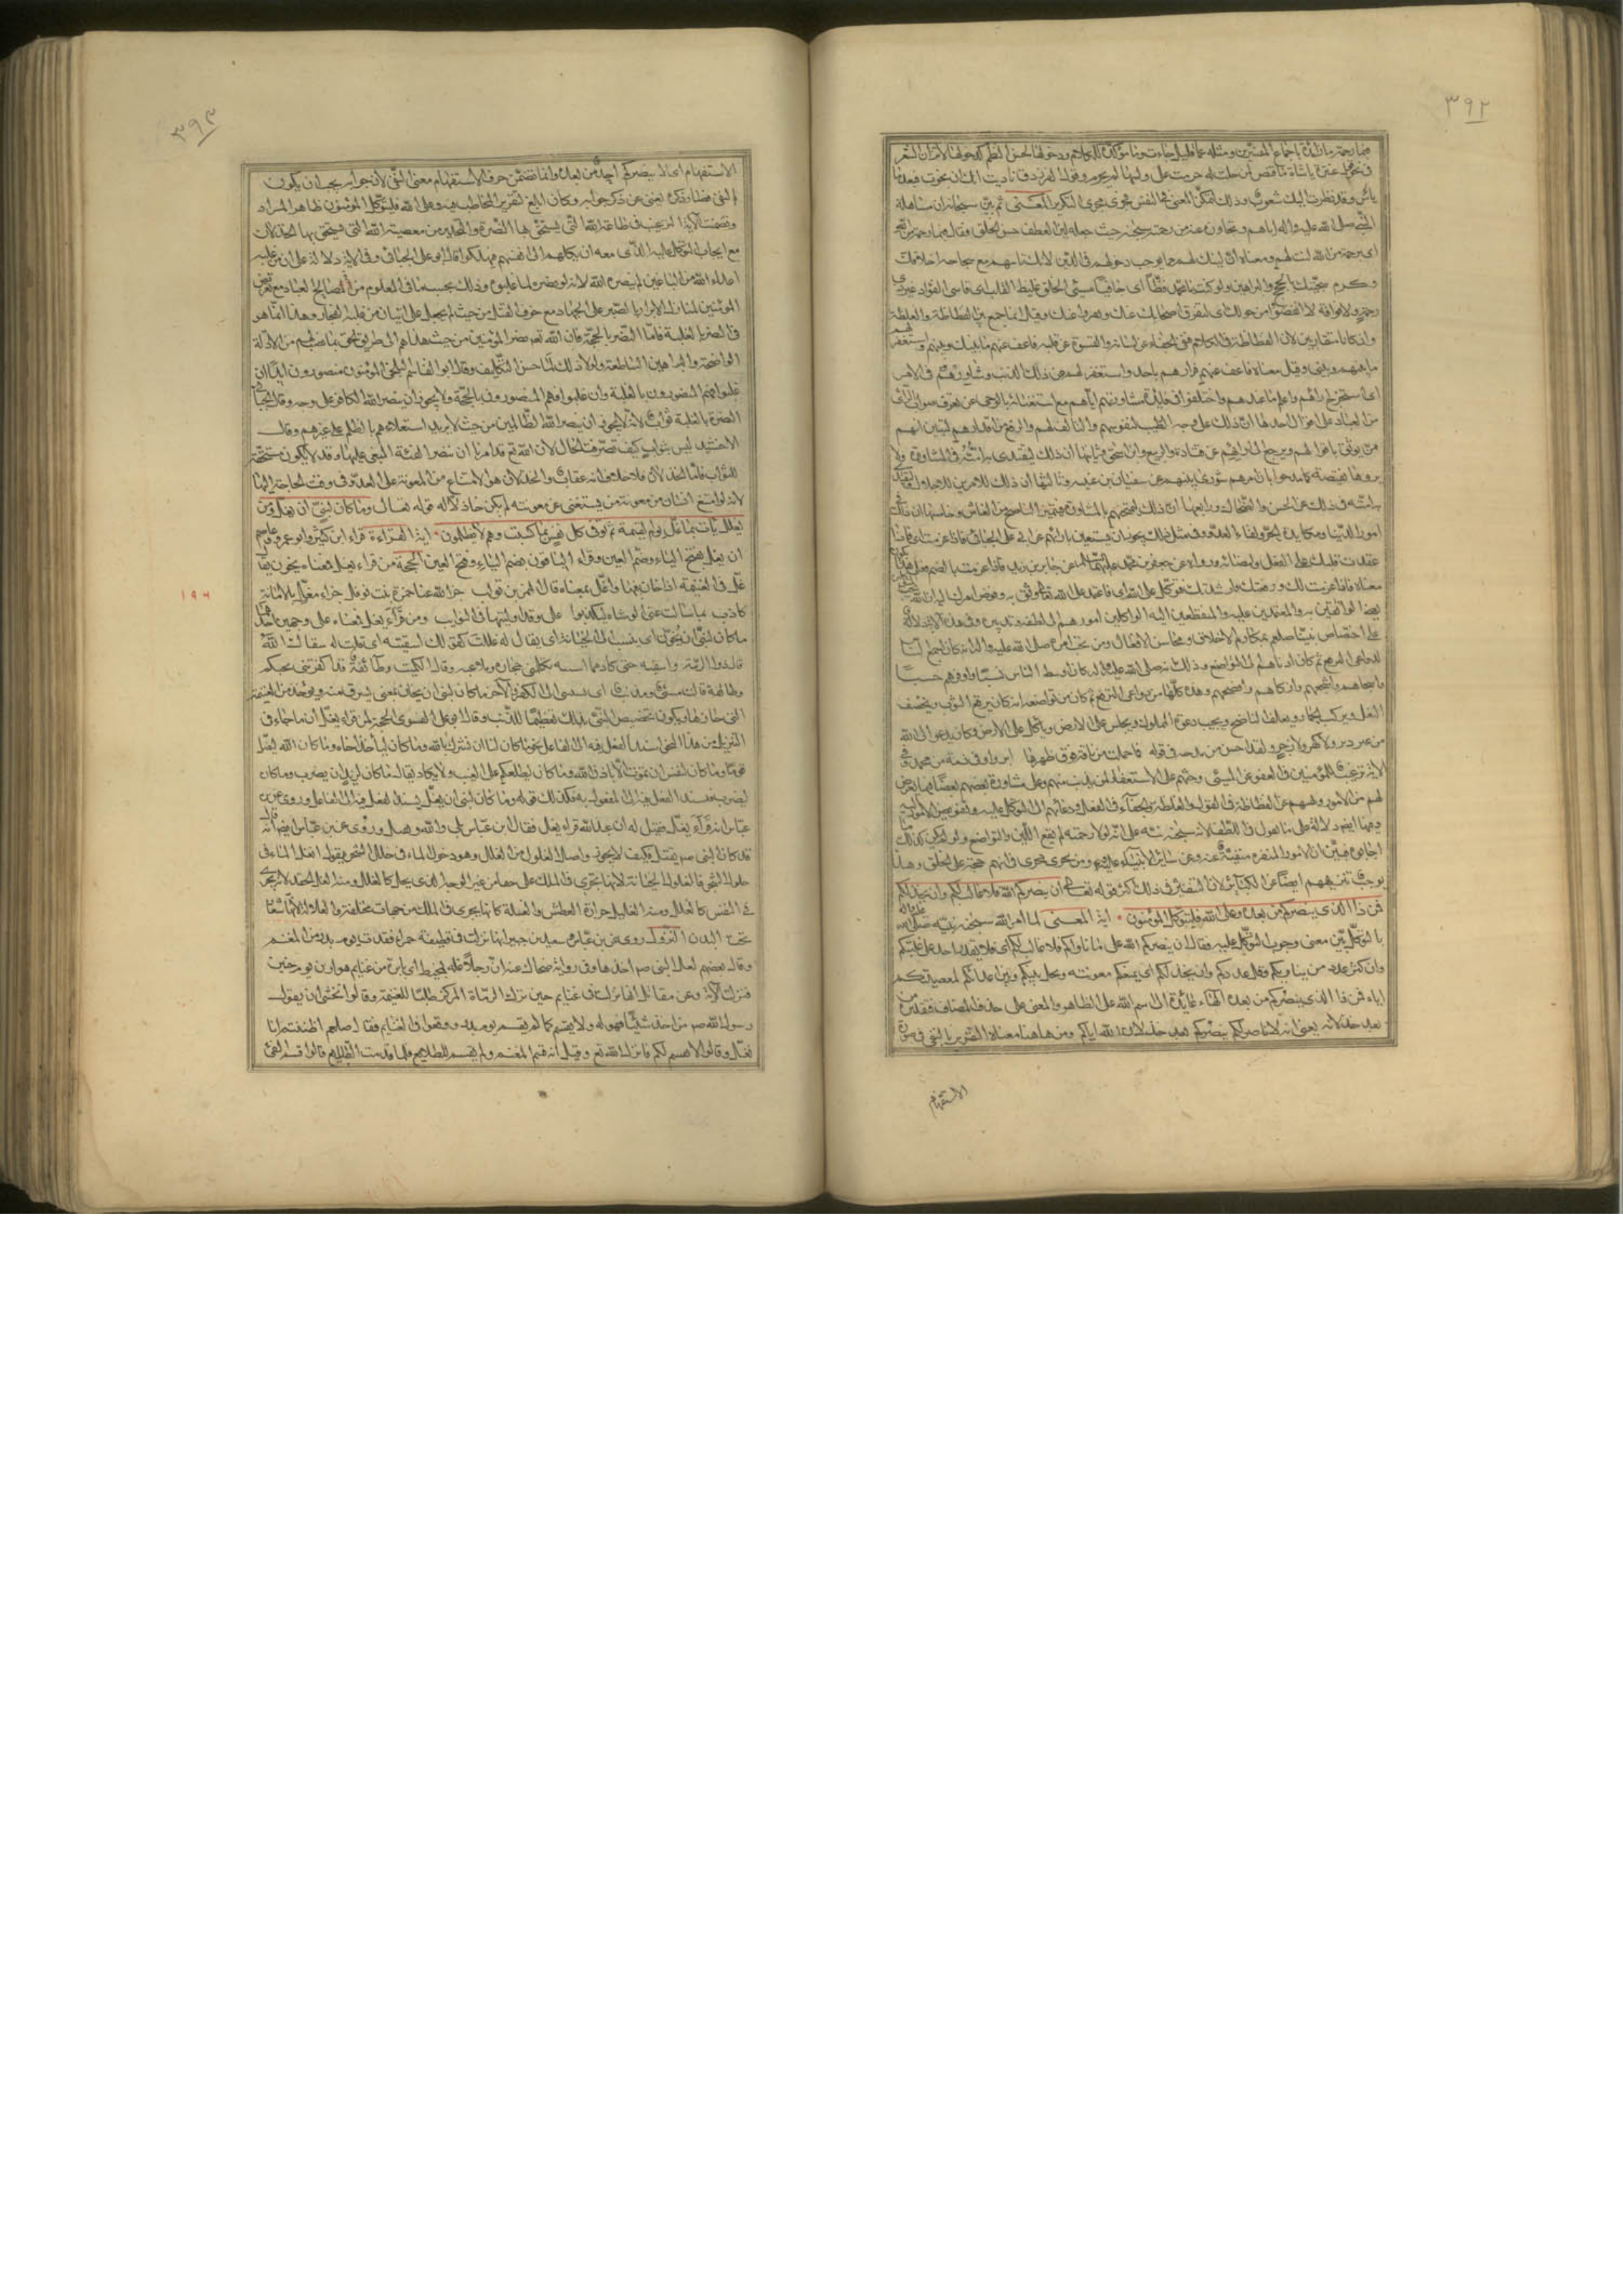 ٣٩٢
فبما رحمة ما زائدة باجماع المفسرين ومثله عما قليل جاءت ما مؤكدة للكلام ودخولها لحسن النظم كدخولها لاتزان الشعر
النبي صلى الله عليه واله اياهم وتجاوزه عنهم من رحمته حيث جعله لين العطف حسن الخلق فقال فبما رحمة من الله
اى برحمة من الله لنت لهم ومعناه ان لينك لهم مما يوجب دخولهم فى الدين لانك تاتيهم مع سجاحة اخلاقك
وكرم سجيتك بالحجج والبراهين ولو كنت يا محمد فظا اى جافيا سيئ الخلق غليظ القلب اى قاسى الفؤاد غير ذى
رحمة ولا رافة لانفضوا من حولك اى لتفرق اصحابك عنك ونفروا عنك وقيل انما جمع بين الفظاظة والغلظة
وان كانا متقاربين لان الفظاظة فى الكلام فنفى الجفاء عن لسانه والقسوة عن قلبه فاعف عنهم ما بينك وبينهم واستغفر لهم
ما بينهم وبينى وقيل معناه فاعف عنهم فرارهم باحد واستغفر لهم من ذلك الذنب وشاورهم فى الامر
اى استخرج اراءهم واعلم ما عندهم واختلفوا فى فايدة مشاورته اياهم مع استغنائه بالوحى عن تعرف صواب الراى
من العباد على اقوال احدها ان ذلك على وجه التطييب لنفوسهم والتالف لهم والرفع من اقدارهم ليتبين انهم
ممن يوثق باقوالهم ويرجع الى ارائهم عن قتادة والربيع وابن اسحق وثانيها ان ذلك ليقتدى به امته فى المشاورة ولا
يروها نقيصة كما مدحوا بان امرهم شورى بينهم عن سفيان بن عيينه وثالثها ان ذلك للامرين
امته فى ذلك عن الحسن والضحاك ورابعها ان ذلك ليمتحنهم بالمشاورة فيتميز الناصح من الغاش وخامسها ان ذلك فى
امور الدنيا ومكايدة الحرب ولقاء العدو وفى مثل ذلك يجوز ان يستعين بارائهم عن ابى على الجبائى فاذا عزمت اى فاذا
عقدت قلبك على الفعل وامضائه ورووا عن جعفر بن محمد عليهما السلام وعن جابر بن زيد فاذا عزمت بالضم
معناه فاذا عزمت لك ووفقتك وارشدتك فتوكل على الله اى فاعتمد على الله وثق به وفوض امرك اليه ان الله يحب
على اختصاص نبينا صلعم بمكارم الاخلاق ومحاسن الافعال ومن عجيب امره صلى الله عليه واله انه كان اجمع الناس
لدواعى الترفع ثم كان ادناهم الى التواضع وذلك انه صلى الله عليه واله كان اوسط الناس نسبا واوفرهم حسبا
واسخاهم واشجعهم وازكاهم وافصحهم وهذه كلها من دواعى الترفع ثم كان من تواضعه انه كان يرقع الثوب ويخصف
النعل ويركب الحمار ويعلف الناضح ويجيب دعوة المملوك ويجلس على الارض وياكل على الارض وكان يدعو الى الله
من غير زبر ولا كهر ولا زجر ولقد احسن من مدحه فى قوله فما حملت من ناقة فوق ظهرها ابر واوفى ذمة من محمد
الاية ترغيب للمؤمنين فى العفو عن المسيئ وحثهم على الاستغفار لمن يذنب منهم وعلى مشاورة بعضهم بعضا فيما يعرض
لهم من الامور ونهيهم عن الفظاظة فى القول والغلظة والجفاء فى الفعل ودعائهم الى التوكل عليه وتفويض الامور اليه
وفيها ايضا دلالة على ما نقول فى اللطف لانه سبحانه نبه على انه لولا رحمته لم يقع اللين والتواضع ولو لم يكن كذلك
اجابوه فبين ان الامور المنفرة منفية عنه وعن سائر الانبياء ومن يجرى مجراهم فى انهم حجة على الخلق وهذا
يوجب تنزيههم ايضا عن الكبائر لان التنفير فى ذلك اكثر قوله تعالى ان ينصركم الله فلا غالب لكم وان يخذلكم
فمن ذا الذى ينصركم من بعده وعلى الله فليتوكل المؤمنون اية المعنى لما امر الله سبحانه نبيه صلى الله عليه واله
بالتوكل بين معنى وجوب التوكل عليه فقال ان ينصركم الله على من ناواكم فلا غالب لكم اى فلا يقدر احد على غلبتكم
وان كثر عدد من يناويكم وقل عددكم وان يخذلكم اى يمنعكم معونته ويخل بينكم وبين اعدائكم لمعصيتكم
اياه فمن ذا الذى ينصركم من بعده الهاء عائدة الى اسم الله على الظاهر والمعنى على حذف المضاف
بعد خذلانه يعنى انه لا ناصر لكم ينصركم بعد خذلان الله اياكم ومن هاهنا معناه التقرير بالنفى فى صورة
الاستفهام
٣٩٣
الاستفهام اى لا ينصركم احد من بعده وانما تضمن حرف الاستفهام معنى النفى لان جوابه يجب ان يكون
بالنفى فصار ذكره يغنى عن ذكر جوابه وكان ابلغ لتقرير المخاطب فيه وعلى الله فليتوكل المؤمنون ظاهر المراد
وتضمنت الاية الترغيب فى طاعة الله التى يستحق بها النصرة والتحذير من معصية الله التى يستحق بها الخذلان
مع ايجاب التوكل عليه الذى معه ان يكلهم الى انفسهم فيهلكوا قال ابو على الجبائى وفى الاية دلالة على ان من غلبه
اعداء الله من الباغين لم ينصره الله لانه لو نصره لما غلبوه وذلك بحسب ما فى المعلوم من المصالح للعباد مع تعريض
المؤمنين لمنازل الابرار بالصبر على الجهاد مع خوف القتل من حيث لم يجعل على امان من غلبة الفجار وهذا انما هو
فى النصر بالغلبة فاما النصر بالحجة فان الله تعالى نصر المؤمنين من حيث هداهم الى طريق الحق بما نصب لهم من الادلة
الواضحة والبراهين الساطعة ولولا ذلك لما حسن التكليف وقال ابو القاسم البلخى المؤمنون منصورون ابدا ان
غلبوا فهم المنصورون بالغلبة وان غلبوا فهم المنصورون بالحجة ولا يجوز ان ينصر الله الكافر على وجه وقال الجبائى
النصرة بالغلبة ثواب لانه لا يجوز ان ينصر الله الظالمين من حيث لا يريد استعلاءهم بالظلم على غيرهم وقال
الاخشيد ليس بثواب كيف تصرفت الحال لان الله تع قد امرنا ان ننصر الفئة المبغى عليها وقد لا يكون مستحقة
للثواب فاما الخذلان فلا خلاف انه عقاب والخذلان هو الامتناع من المعونة على العدو فى وقت الحاجة اليها
لانه لو امتنع انسان من معونة من يستغنى عن معونته لم يكن خاذلا له قوله تعالى وما كان لنبى ان يغل ومن
يغلل يات بما غل يوم القيمة ثم توفى كل نفس ما كسبت وهم لا يظلمون اية القراءة قراء ابن كثير وابو عمرو وعاصم
ان يغل بفتح الياء وضم الغين وقراء الباقون بضم الياء وفتح الغين الحجة من قراء يغل فمعناه يخون يقال
غل فى الغنيمة اذا خان فيها واغل بمعناه قال النمر بن تولب جزى الله عنا جمرة ابنة نوفل جزاء مغل بالامانة
١٩٤
كاذب بما سالت عنى الوشاة ليكذبوا على وقد اوليتها فى النوايب ومن قراء يغل فمعناه على وجهين احدهما
ما كان لنبى ان يخون اى ينسب الى الخيانة اى يقال له غللت كقولك اسقيته اى قلت له سقاك الله
قال ذو الرمة واسقيه حتى كاد مما ابثه تكلمنى احجاره وملاعبه وقال الكميت وطائفة قد اكفرتنى بحبكم
وطائفة قالت مسئ ومذنب اى نسبتنى الى الكفر والاخر ما كان لنبى ان يخان بمعنى يسرق منه ويؤخذ من الغنيمة
التى حازها ويكون تخصيص النبى بذلك تعظيما للذنب وقال ابو على الفسوى الحجة لمن قراء يغل ان ما جاء فى
التنزيل من هذا النحو اسند الفعل فيه الى الفاعل نحو ما كان لنا ان نشرك بالله وما كان لياخذ اخاه وما كان الله ليضل
قوما وما كان لنفس ان تموت الا باذن الله وما كان ليطلعكم على الغيب ولا يكاد يقال ما كان لزيد ان يضرب وما كان
ليضرب فيسند الفعل فيه الى المفعول به فكذلك قوله وما كان لنبى ان يغل يسند الفعل فيه الى الفاعل وروى عن ابن
عباس انه قراء يغل فقيل له ان عبد الله قراء يغل فقال ابن عباس بلى والله ويقتل وروى عن ابن عباس ايضا انه قال
قد كان النبى ص يقتل فكيف لا يخون واصل الغلول من الغلل وهو دخول الماء فى خلال الشجر يقول انغل الماء فى
اصول الشجر فالغلول الخيانة لانها تجرى فى الملك على خفاء من غير الوجه الذى يحل كالغلل ومنه الغل الحقد لانه يجرى
فى النفس كالغلل ومنه الغليل حرارة العطش والغلة كانها يجرى فى الملك من جهات مختلفة والغلالة لانها شعار
تحت البدن النزول روى عن ابن عباس وسعيد بن جبير انها نزلت فى قطيفة حمراء فقدت يوم بدر من المغنم
وقال بعضهم لعل النبى ص اخذها وفى رواية ضحاك عنه ان رجلا غل بمخيط اى بابرة من غنايم هوازن يوم حنين
فنزلت الاية وعن مقاتل انها نزلت فى غنايم احد حين ترك الرماة المركز طلبا للغنيمة وقالوا نخشى ان يقول
رسول الله ص من اخذ شيئا فهو له ولا يقسم كما لم يقسم يوم بدر ووقعوا فى الغنايم فقال صلعم اظننتم انا
نغل ولا نقسم لكم فانزل الله تع وقيل انه قسم المغنم ولم يقسم للطلايع فلما قدمت الطلايع قالوا اقسم الفئ